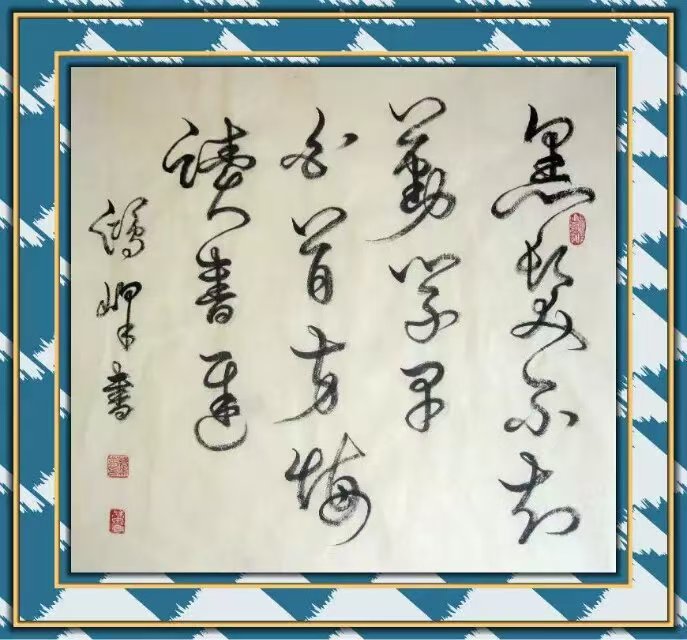 黑髮不知
勤學早
白首方悔
讀書遲
書